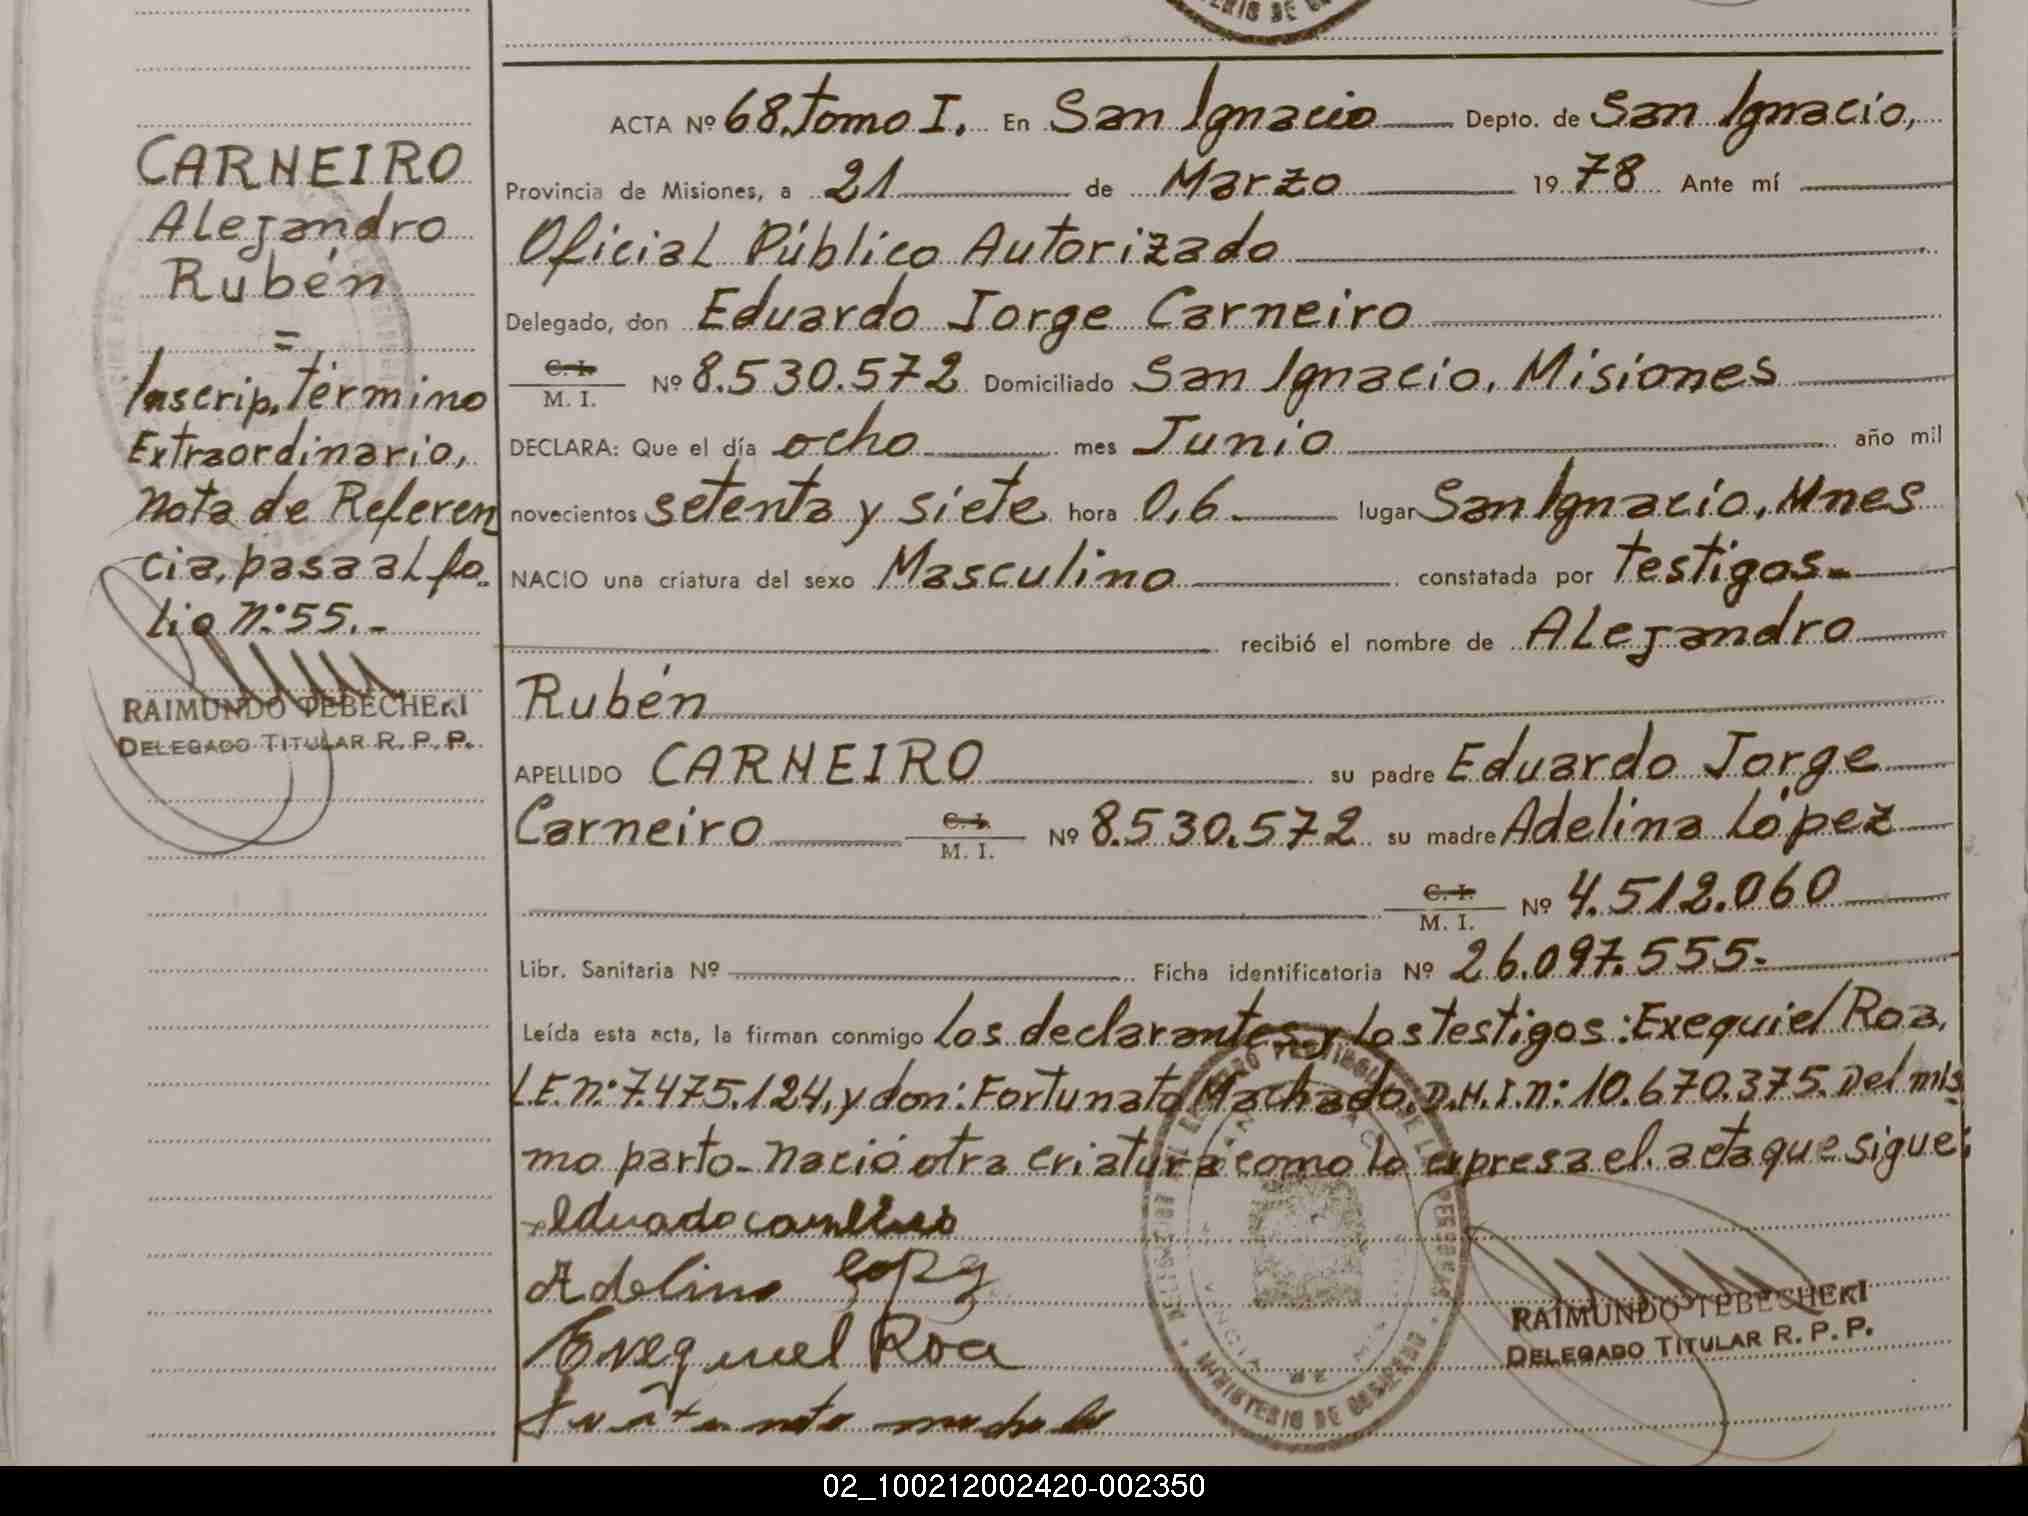 CARNEIRO
Alejandro
Rubén
=
Inscrip. término
Extraordinario,
nota de Referen
cia, pasa al fo_
lio n:º 55.-
RAIMUNDO TEBECHERI
DELEGADO TITULAR R. P. P.
ACTA Nº 68. tomo I. En San Ignacio Depto. de San Ignacio,
Provincia de Misiones, a 21 de Marzo 19 78 Ante mí
Oficial Público Autorizado
Delegado, don Eduardo Jorge Carneiro
C. I.
M. I. Nº 8.530.572 Domiciliado San Ignacio, Misiones
DECLARA: Que el día ocho mes Junio año mil
novecientos setenta y siete hora 0,6 lugar San Ignacio, Mnes
NACIO una criatura del sexo Masculino constatada por testigos-
recibió el nombre de Alejandro
Rubén
APELLIDO CARNEIRO su padre Eduardo Jorge
Carneiro C. I. M. I. Nº 8.530.572 su madre Adelina López
C. I.
M. I. Nº 4.512.060
Libr. Sanitaria Nº Ficha identificatoria Nº 26.097.555-
Leída esta acta, la firman conmigo los declarantes y los testigos: Exequiel Roa,
L.E.n:º 7.475.124, y don: Fortunato Machado, D.N.I.n: 10.670.375. Del mis
mo parto- nació otra criatura como lo expresa el acta que sigue:
Eduardo Carneiro
Adelina Lopez
Exequiel Roa
Fortunato machado
MINISTERIO DE GOBIERNO
RAIMUNDO TEBECHERI
DELEGADO TITULAR R. P. P.
02_100212002420-002350